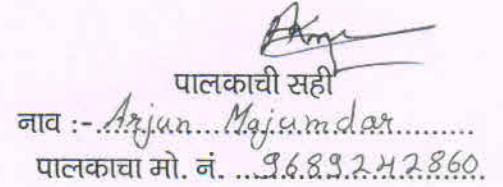 पालकाची सही
नाव :- Arjun Majumdar
पालकाचा मो. नं. 9689242860